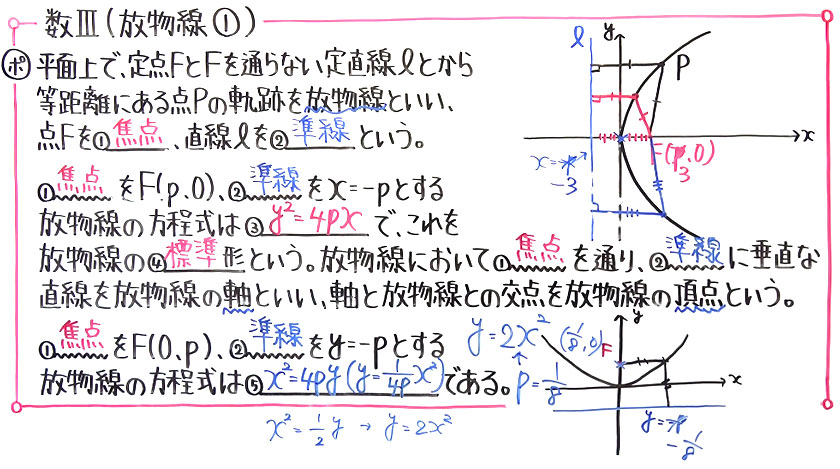 数Ⅲ(放物線①)
ポ 平面上で、定点FとFを通らない定直線ℓとから
等距離にある点Pの軌跡を放物線といい、
点Fを①焦点、直線ℓを②準線という。
①焦点をF(p,0)、②準線をx=-pとする
放物線の方程式は③y²=4pxで、これを
放物線の④標準形という。放物線において①焦点を通り、②準線に垂直な
直線を放物線の軸といい、軸と放物線との交点を放物線の頂点という。
①焦点をF(0,p)、②準線をy=-pとする
放物線の方程式は⑤x²=4py(y=1/4p x²)である。
x²=1/2 y → y=2x²
ℓ
y
P
x
F(p,0)
3
x=-p
-3
y=2x²
(1/8,0)
↑
p=1/8
F
y
x
y=-p
-1/8